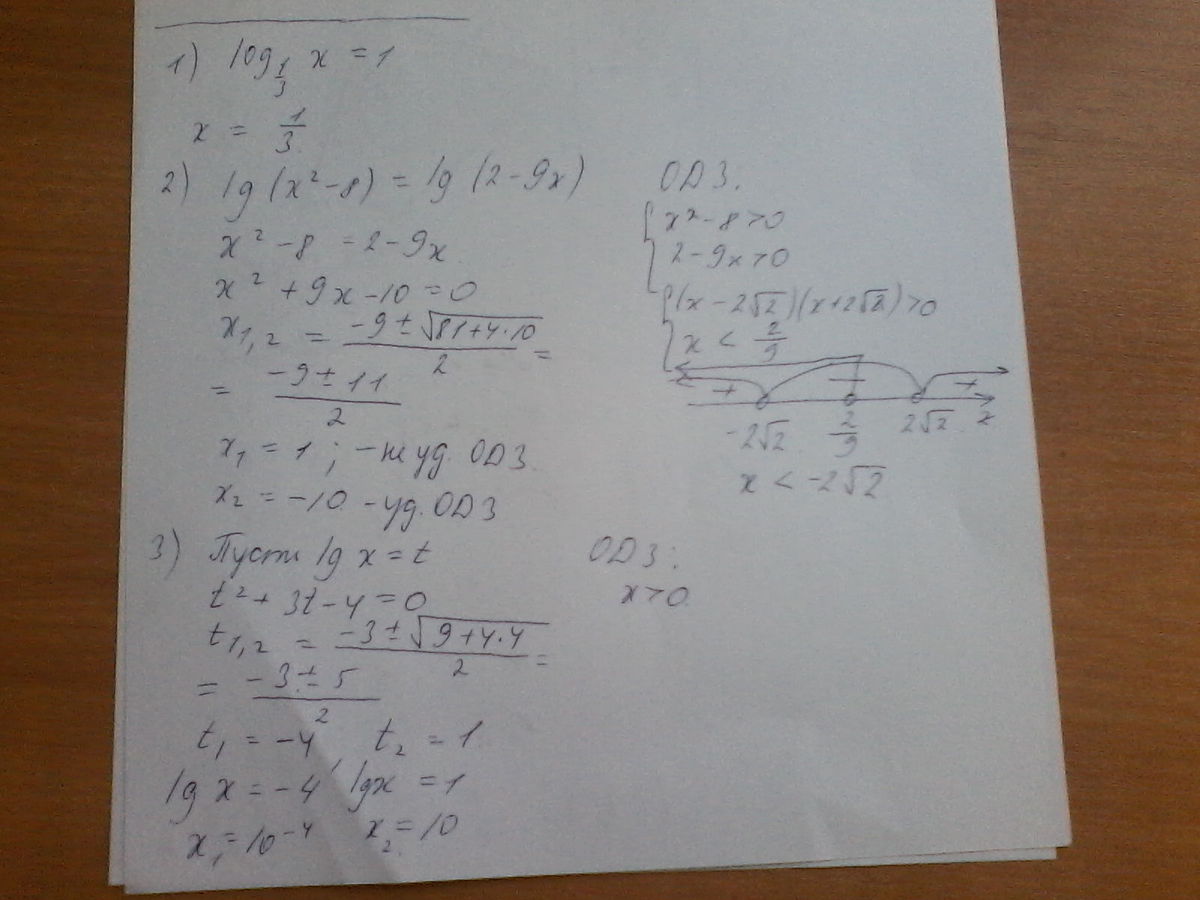 1) log_{1/3} x = 1
x = 1/3
2) lg (x² - 8) = lg (2 - 9x)
x² - 8 = 2 - 9x
x² + 9x - 10 = 0
x_{1,2} = (-9 ± √(81 + 4·10))/2 =
= (-9 ± 11)/2
x₁ = 1; - не уд. ОДЗ
x₂ = -10 - уд. ОДЗ
ОДЗ.
{ x² - 8 > 0
2 - 9x > 0
{ (x - 2√2)(x + 2√2) > 0
x < 2/9
+ − +
-2√2 2/9 2√2 x
x < -2√2
3) Пусть lg x = t
t² + 3t - 4 = 0
t_{1,2} = (-3 ± √(9 + 4·4))/2 =
= (-3 ± 5)/2
t₁ = -4, t₂ = 1
lg x = -4 lgx = 1
x₁ = 10⁻⁴ x₂ = 10
ОДЗ:
x > 0